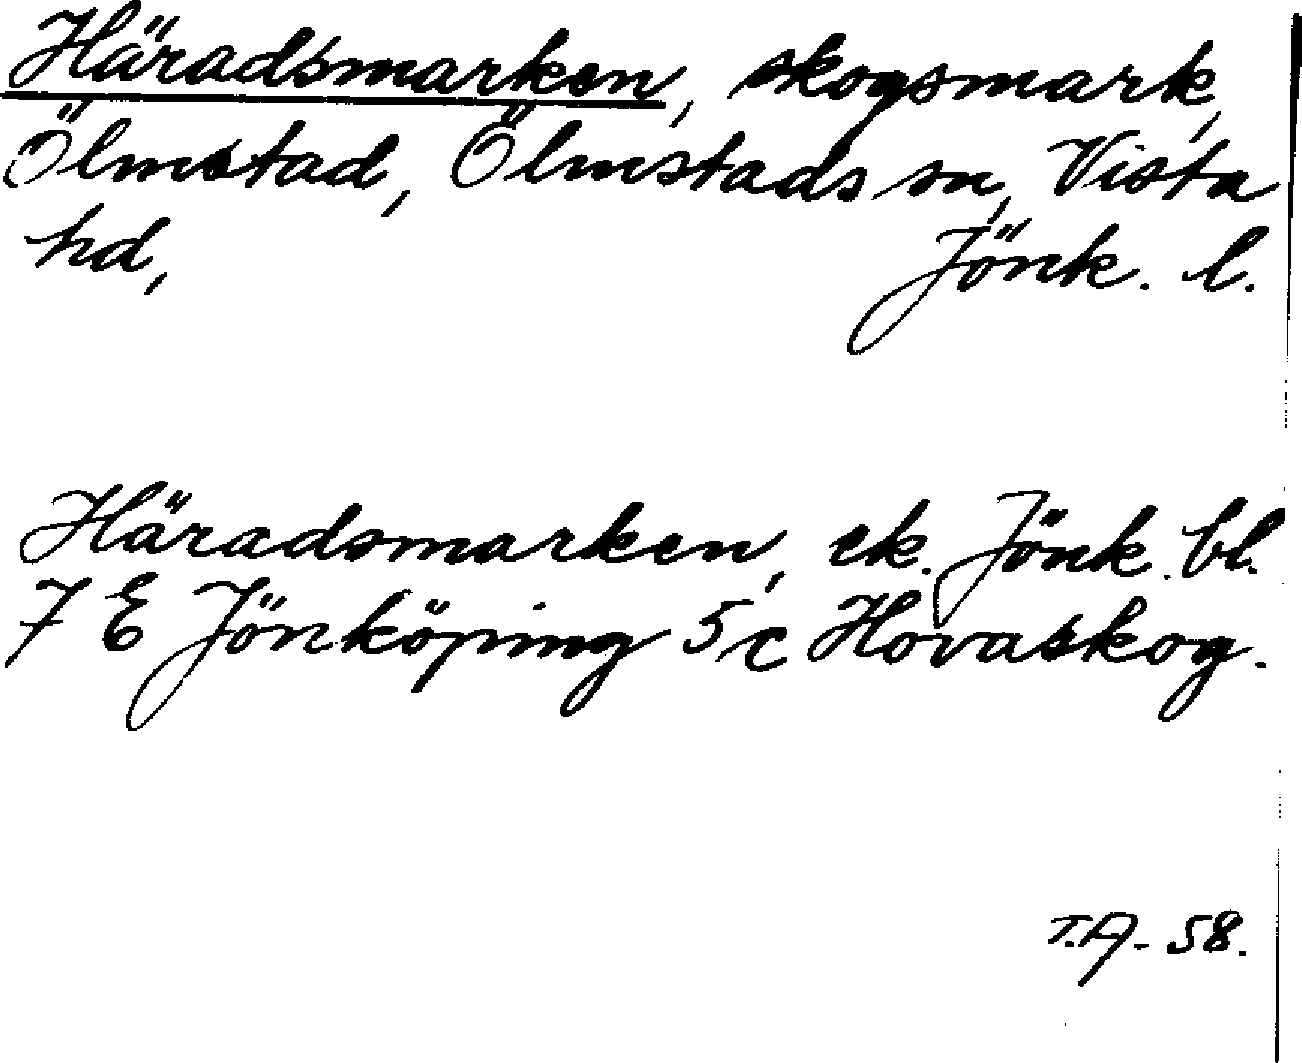 Häradsmarken, skogsmark,
Ölmstad, Ölmstads sn, Vista
hd, Jönk. l.
Häradsmarken, ek. Jönk. bl.
7 E Jönköping 5c Hovaskog.
T.A- 58.